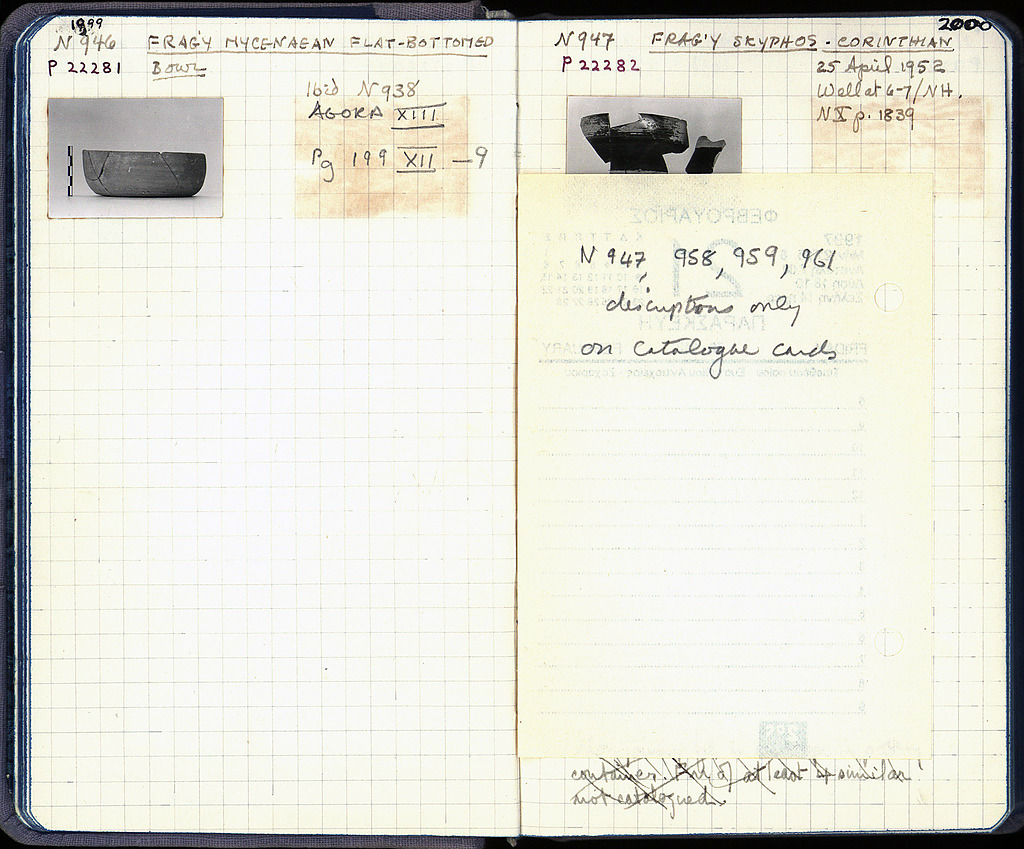 1999
N 946 FRAG'Y MYCENAEAN FLAT-BOTTOMED
P 22281 BOWL
Ibid N 938
AGORA XIII
Pg 199 XII —9
2000
N 947 FRAG'Y SKYPHOS - CORINTHIAN
P 22282 25 April 1952
Well at 6-7/NH.
N X p. 1839
ΦΕΒΡΟΥΑΡΙΟΣ
1997
21
N 947, 958, 959, 961
descriptions only
ΠΑΡΑΣΚΕΥΗ
on catalogue cards
container. Frr of at least 4 similar
not catalogued.